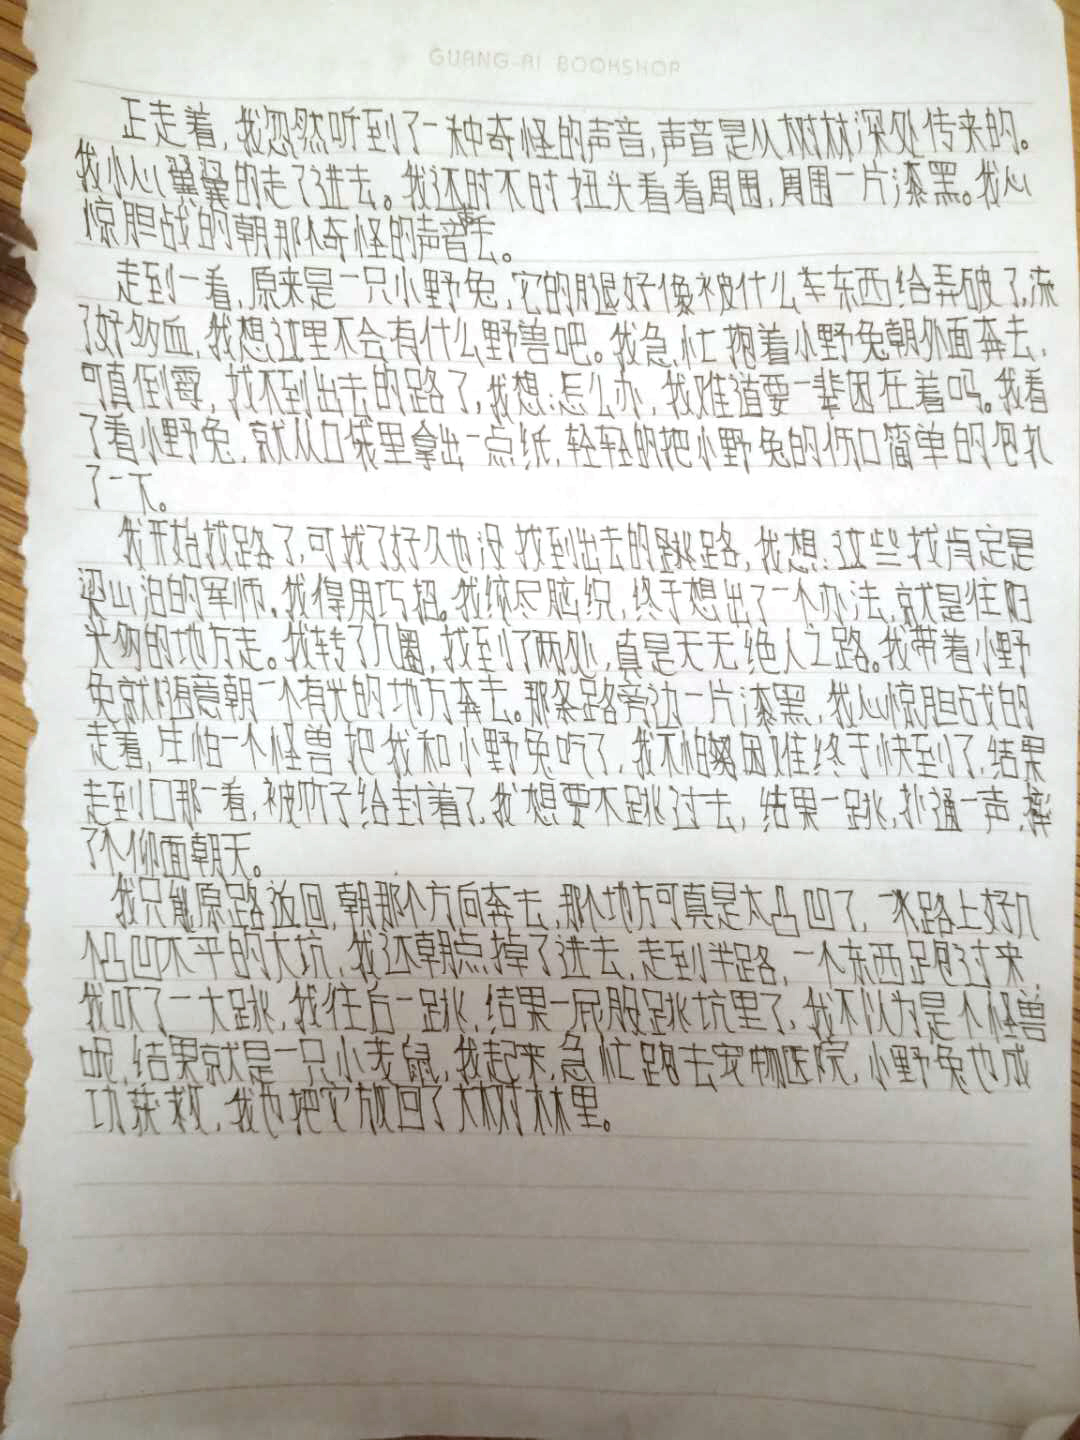 GUANG-AI BOOKSHOP
正走着,我忽然听到了一种奇怪的声音,声音是从树林深处传来的。
我小心翼翼的走了进去。我还时不时扭头看看周围,周围一片漆黑。我心
惊胆战的朝那个奇怪的声音走去。
走到一看,原来是一只小野兔,它的腿好像被什么车东西给弄破了,流
了好多血,我想:这里不会有什么野兽吧。我急忙抱着小野兔朝外面奔去,
可真倒霉,找不到出去的路了,我想:怎么办,我难道要一辈困在着吗。我看
了看小野兔,就从口袋里拿出一点纸,轻轻的把小野兔的伤口简单的包扎
了一下。
我开始找路了,可找了好久也没找到出去的跳路,我想:这些找肯定是
梁山泊的军师,我得用巧招。我绞尽脑织,终于想出了一个办法,就是往阳
光多的地方走。我转了几圈,找到了两处,真是天无绝人之路。我带着小野
兔就随意朝一个有光的地方奔去。那条路旁边一片漆黑,我心惊胆战的
走着,生怕一个怪兽把我和小野兔吃了,我不怕困难终于快到了,结果
走到口那一看,被竹子给封着了,我想要不跳过去,结果一跳,扑通一声,摔
了个仰面朝天。
我只能原路返回,朝那个方向奔去,那个地方可真是太凸凹了,一水路上好几
个凸凹不平的大坑,我还朝点掉了进去,走到半路,一个东西跑过来,
我吓了一大跳,我往后一跳,结果一屁股跳坑里了,我不以为是个怪兽
呢,结果就是一只小老鼠,我起来,急忙跑去宠物医院,小野兔也成
功获救,我也把它放回了大树林里。